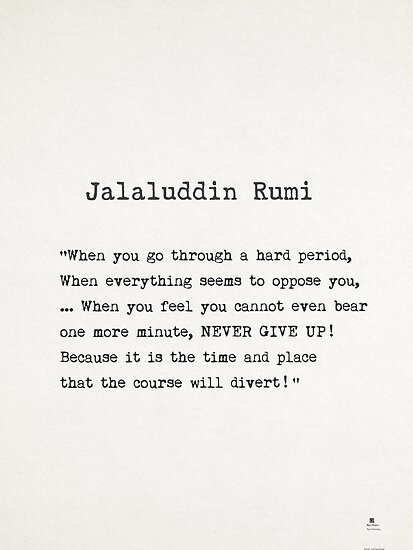 Jalaluddin Rumi
"When you go through a hard period,
When everything seems to oppose you,
... When you feel you cannot even bear
one more minute, NEVER GIVE UP!
Because it is the time and place
that the course will divert!"